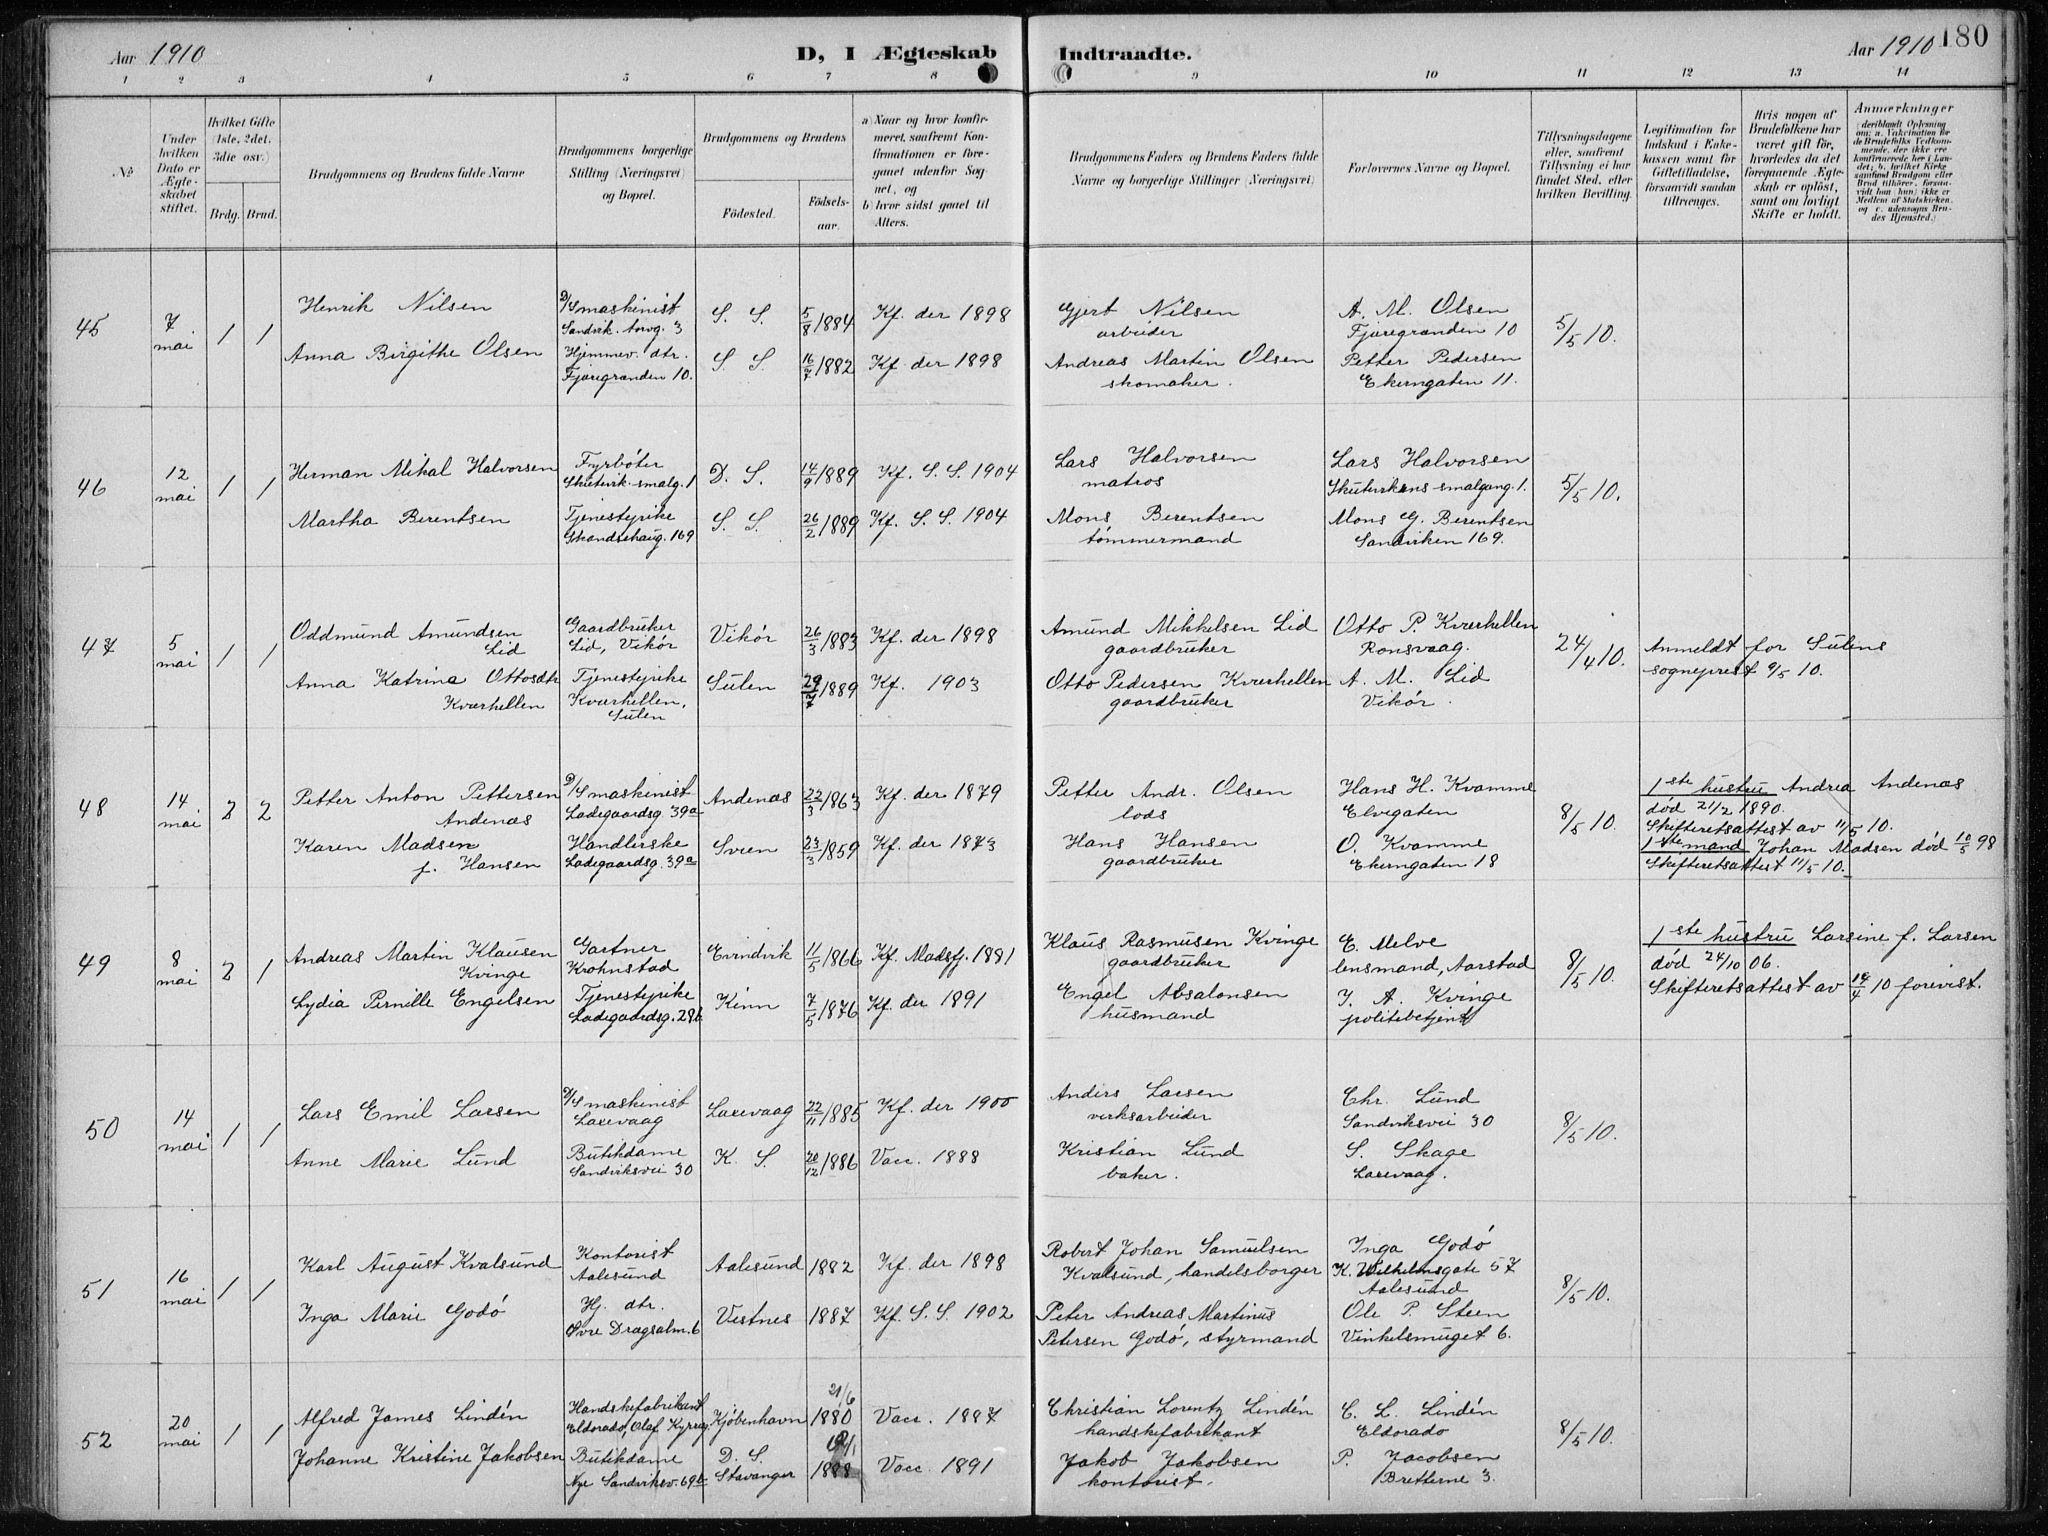 Aar 1910
D, I Ægteskab
Indtraadte.
Aar 1910
180
1 2 3 4 5 6 7 8 9 10 11 12 13 14
No.
Under hvilken Dato er Ægteskabet stiftet.
Hvilket Gifte (1ste, 2det, 3die osv.)
Brdg. Brud.
Brudgommens og Brudens fulde Navne
Brudgommens borgerlige Stilling (Næringsvei) og Bopæl.
Brudgommens og Brudens
Födested.
Födselsaar.
a) Naar og hvor konfirmeret, saafremt Konfirmationen er foregaaet udenfor Sognet, og
b) hvor sidst gaaet til Alters.
Brudgommens Faders og Brudens Faders fulde Navne og borgerlige Stillinger (Næringsvei)
Forlovernes Navne og Bopæl.
Tillysningsdagene eller, saafremt Tillysning ei har fundet Sted, efter hvilken Bevilling.
Legitimation for Indskud i Enkekassen samt for Giftetilladelse, forsaavidt saadan tiltrænges.
Hvis nogen af Brudefolkene har været gift før, hvorledes da det foregaaende Ægteskab er oplöst, samt om lovligt Skifte er holdt.
Anmærkninger (deriblandt Oplysning om: a. Vakcination for de Brudefolks Vedkommende, der ikke ere konfirmerede her i Landet; b. hvilket Kirkesamfund Brudgom eller Brud tilhörer, forsaavidt han (hun) ikke er Medlem af Statskirken, og c. udensogns Brudes Hjemsted.)
45 7 mai 1 1
Henrik Nilsen D/S maskinist Sandvik. torvg. 3 S. S. 5/8 1884 Kf. der 1898
Gjert Nilsen arbeider A. M. Olsen Fjæregranden 10 5/5 10.
Anna Birgithe Olsen Hjemmev. dtr. Fjæregranden 10. S. S. 16/7 1882 Kf. der 1898
Andreas Martin Olsen skomaker. Petter Pedersen Ekerngaten 11.
46 12 mai 1 1
Herman Mikal Halvorsen Fyrbøter Skutevik. smalg. 1 D. S. 14/9 1889 Kf. S. S. 1904
Lars Halvorsen matros Lars Halvorsen Skutevikens smalgang. 1. 5/5 10.
Martha Berentsen Tjenestepike Skandsehaug. 169 S. S. 26/2 1889 Kf. S. S. 1904
Mons Berentsen tømmermand Mons G. Berentsen Sandviken 169.
47 5 mai 1 1
Oddmund Amundsen Lid Gaardbruker Lid, Vikør Vikør 26/3 1883 Kf. der 1898
Amund Mikkelsen Lid gaardbruker Otto P. Kværhellen Rønsvaag. 24/4 10. Anmeldt for Sulens sogneprest 9/5 10.
Anna Katrina Ottosdtr. Kværhellen Tjenestepike Kværhellen, Sulen Sulen 1889 Kf. 1903
Otto Pedersen Kværhellen gaardbruker A. M. Lid Vikør.
48 14 mai 2 2
Petter Anton Pettersen Andenæs D/S maskinist Ladegaardsg. 39a Andenæs 22/3 1863 Kf. der 1879
Petter Andr. Olsen lods Hans H. Kvamme Elvegaten 8/5 10.
1ste hustru Andrea Andenæs død 21/2 1890.
Skifteretsattest av 11/5 10.
Karen Madsen f. Hansen Handlerske Ladegaardsg. 39a Sveen 23/3 1859 Kf. der 1873
Hans Hansen gaardbruker O. Kvamme Ekerngaten 18
1ste mand Johan Madsen død 10/5 98
Skifteretsattest 11/5 10.
49 8 mai 2 1
Andreas Martin Klausen Kvinge Gartner Krohnstad Evindvik 11/5 1866 Kf. Masfj. 1881
Klaus Rasmusen Kvinge gaardbruker E. Melve lensmand, Aarstad 8/5 10.
1ste hustru Larsine f. Larsen død 24/10 06.
Skifteretsattest av 14/4 10 forevist.
Lydia Pernille Engelsen Tjenestepike Ladegaardsg. 28b Kinn 7/5 1876 Kf. der 1891
Engel Absalonsen husmand J. A. Kvinge politibetjent
50 14 mai 1 1
Lars Emil Larsen D/S maskinist Laxevaag Laxevaag 22/11 1885 Kf. der 1900
Anders Larsen verksarbeider Chr. Lund Sandviksvei 30 8/5 10.
Anne Marie Lund Butikdame Sandviksvei 30 K. S. 20/12 1886 Vacc. 1888
Kristian Lund baker. S. Skage Laxevaag.
51 16 mai 1 1
Karl August Kvalsund Kontorist Aalesund Aalesund 1882 Kf. der 1898
Robert Johan Samuelsen Kvalsund, handelsborger Inga Godø K. Wilhelmsgate 57 Aalesund 8/5 10.
Inga Marie Godø Hj. dtr. Øvre Dragsalm. 6 Vestnes 1887 Kf. S. S. 1902
Peter Andreas Martinus Petersen Godø, styrmand Ole P. Steen Vinkelsmuget 6.
52 20 mai 1 1
Alfred James Lindén Handskefabrikant Eldorado, Olaf Kyrreg. Kjøbenhavn 21/6 1880 Vacc. 1887
Christian Lorentz Lindén handskefabrikant C. L. Lindén Eldorado 8/5 10.
Johanne Kristine Jakobsen Butikdame Nye Sandviksv. 69b D. S. Stavanger Vacc. 1891
Jakob Jakobsen kontorist. P. Jacobsen Bretterne 3.